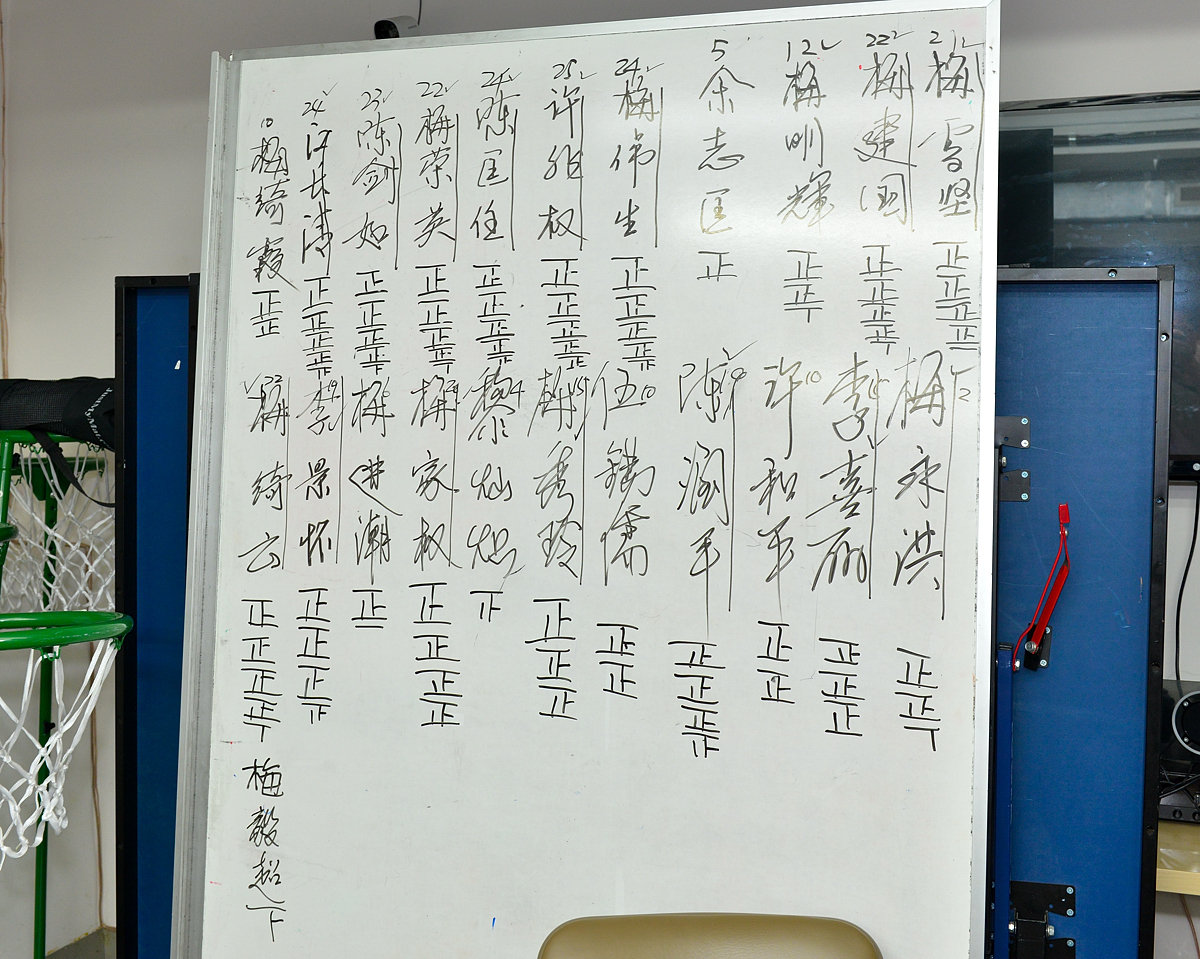 21
梅雪坚
正正正正
22
梅建国
正正正正
12
梅明輝
正正
5
余志匡
正
24
梅伟生
正正正正正
25
许维权
正正正正正
24
陈匡住
正正正正正
22
梅荣英
正正正正
23
陈剑如
正正正正
24
正正正正正
10
梅绮霞
正正
12
梅永洪
正正
李喜丽
正正正
10
许和平
正正
19
陈润平
正正正正
10
伍鋳儒
正正
15
梅秀玲
正正正
4
黎灿灿
梅家权
正正正正
梅进潮
正
19
李景怀
正正正
梅绮云
正正正正
梅毅超
下